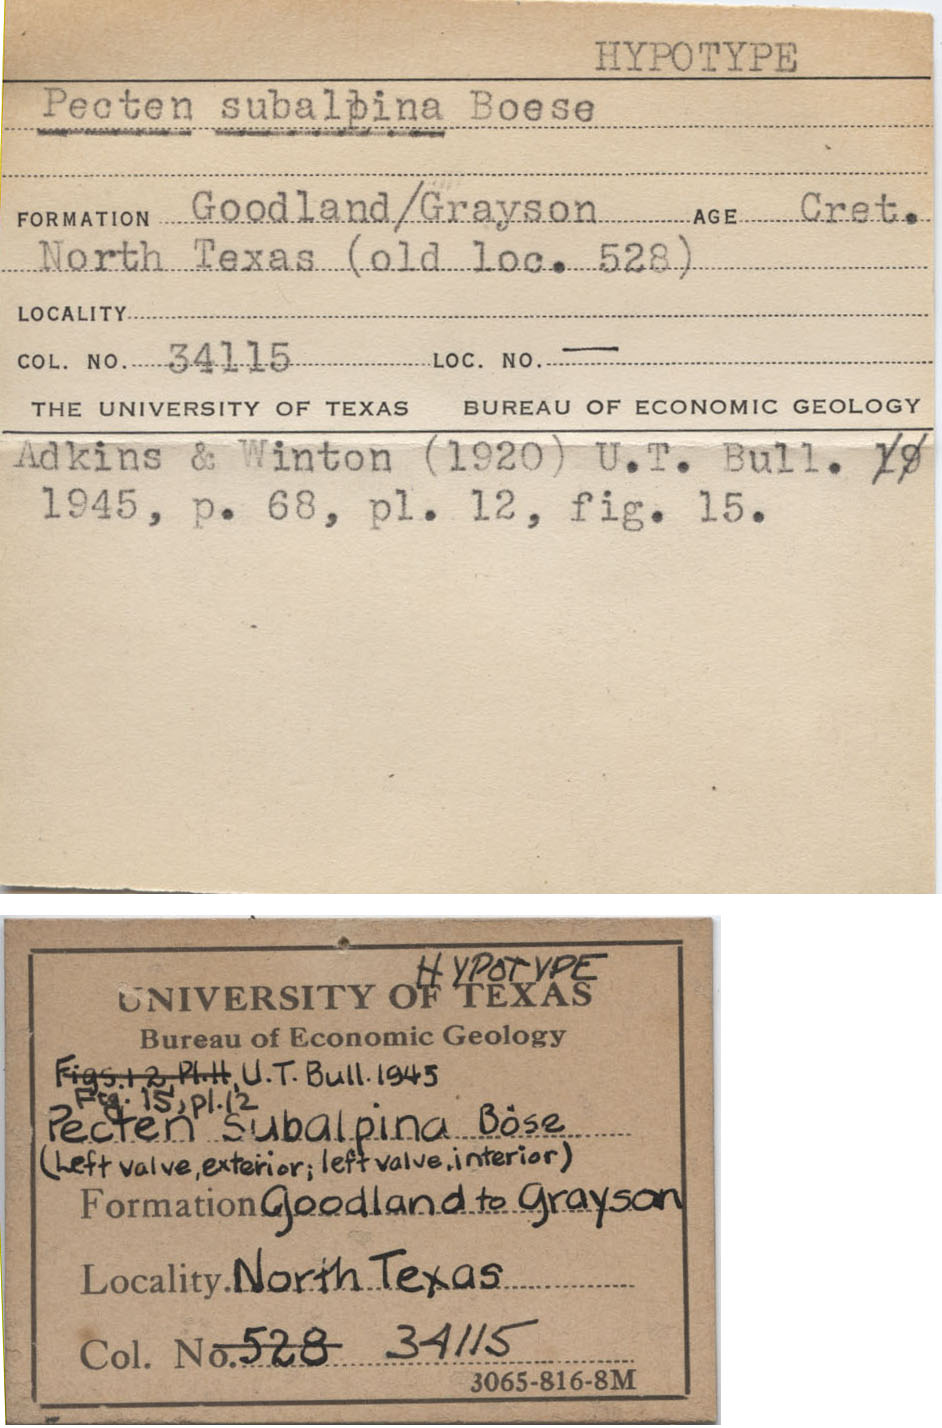 HYPOTYPE
Pecten subalpina Boese
FORMATION Goodland/Grayson AGE Cret.
North Texas (old loc. 528)
LOCALITY
COL. NO. 34115 LOC. NO. —
THE UNIVERSITY OF TEXAS BUREAU OF ECONOMIC GEOLOGY
Adkins & Winton (1920) U.T. Bull. 19
1945, p. 68, pl. 12, fig. 15.
HYPOTYPE
UNIVERSITY OF TEXAS
Bureau of Economic Geology
Figs. 1-2, Pl. H, U.T. Bull. 1945
Fig. 15, pl. 12
Pecten subalpina Böse
(Left valve, exterior; left valve, interior)
Formation Goodland to Grayson
Locality. North Texas
Col. No. 528 34115
3065-816-8M